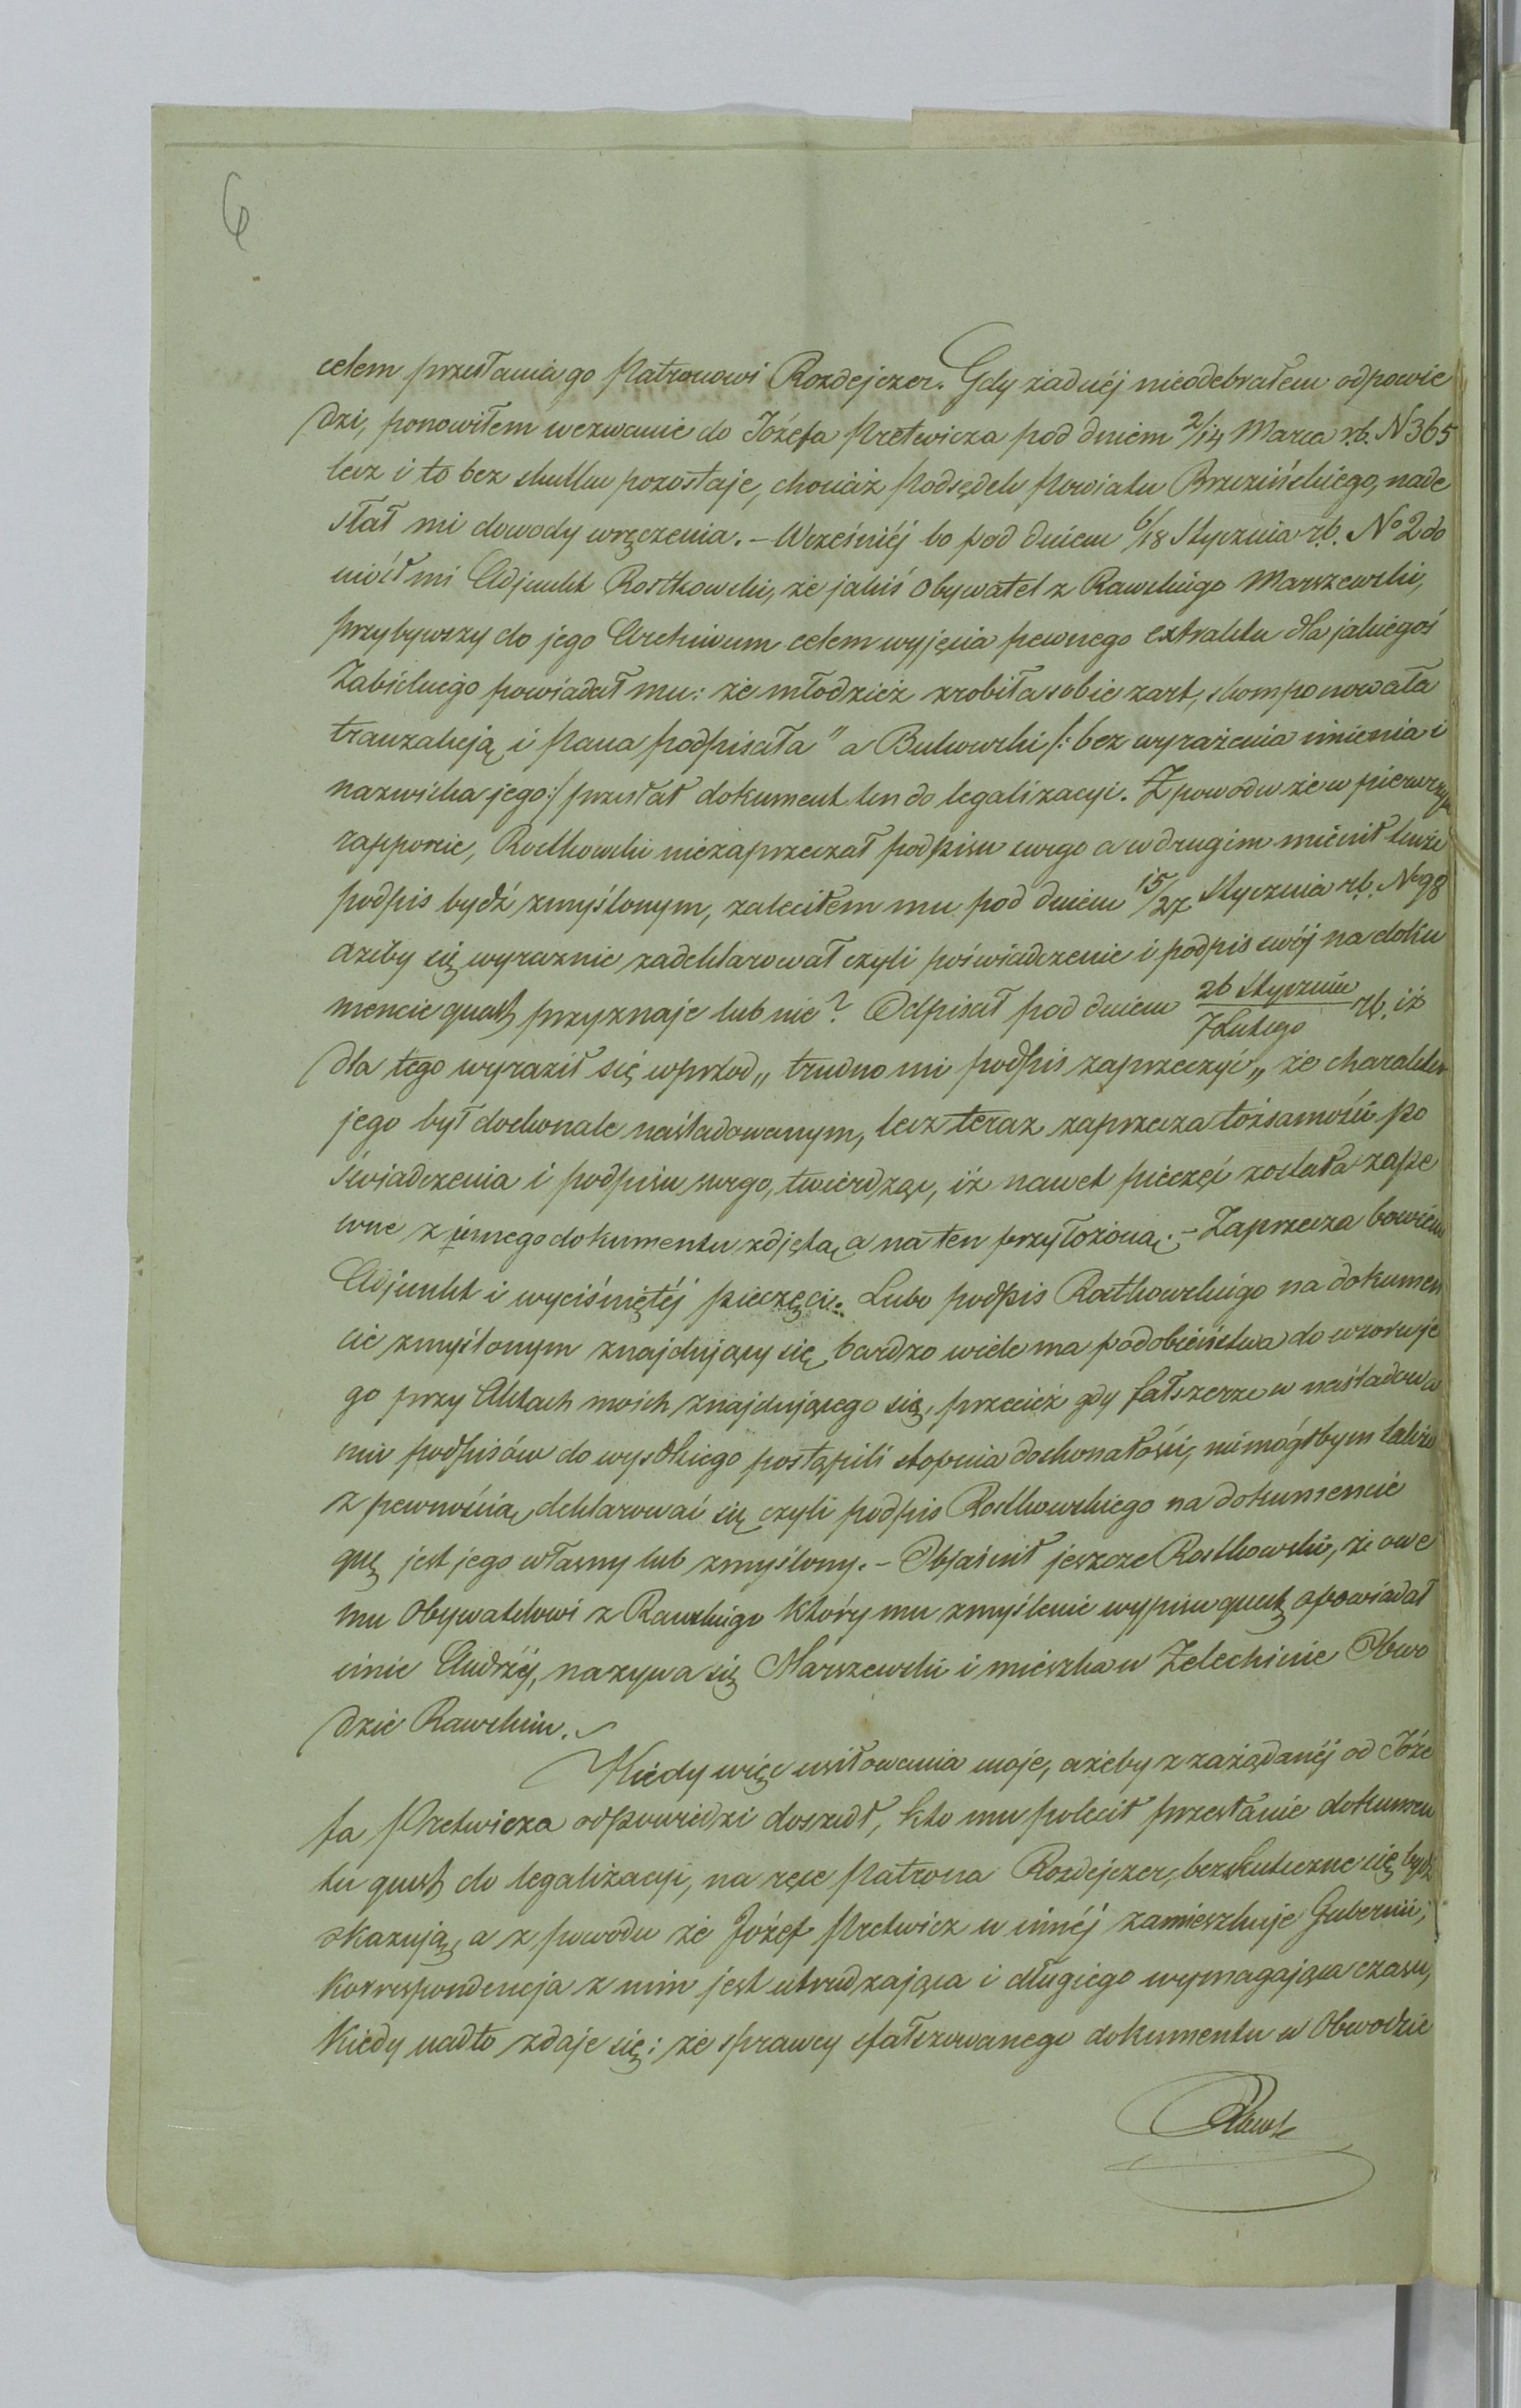 6
celem przesłania go Patronowi Rozdejczer. Gdy żadnéj nieodebrałem odpowie
dzi, ponowiłem wezwanie do Józefa Pretwicza pod dniem 2/14 Marca r.b. N 365
lecz i to bez skutku pozostaje, chociaż Podsędek Powiatu Brzezińskiego, nade
słał mi dowody wręczenia. – Wcześniéj bo pod dniem 6/18 Stycznia r.b. No 2 do
niósł mi Adjunkt Rostkowski, że jakiś Obywatel z Rawskiego Marszewski,
przybywszy do jego Archiwum celem wyjęcia pewnego extraktu dla jakiegoś
Zabickiego powiadał mu: że młodzież zrobiła sobie żart, skomponowała
tranzakcją i Pana podpisała" a Bukowski /: bez wyrażenia imienia i
nazwiska jego :/ przesłał dokument ten do legalizacyi. Z powodu że w pierwszym
rapporcie, Rostkowski niezaprzeczał podpisu swego a w drugim mienił tenże
podpis bydź zmyślonym, zaleciłem mu pod dniem 15/27 Stycznia r.b. No 98
ażeby się wyraznie zadeklarował czyli poświadczenie i podpis swój na doku
mencie quest przyznaje lub nie? Odpisał pod dniem 26 Stycznia/7 Lutego r.b. iż
dla tego wyraził się wprzod „trudno mi podpis zaprzeczyć„ że charakter
jego był doskonale naśladowanym, lecz teraz zaprzecza tożsamości po
świadczenia i podpisu swego, twierdząc, iż nawet pieczęć została zape
wne z innego dokumentu zdjętą a na ten przyłożoną; – Zaprzecza bowiem
Adjunkt i wyciśniętéj pieczęci. Lubo podpis Rostkowskiego na dokumen
cie zmyślonym znajdujący się, bardzo wiele ma podobieństwa do wzoru je
go przy Aktach moich znajdującego się, przecież gdy fałszerze w naśladowa
niu podpisów do wysokiego postąpili stopnia doskonałości, niemógłbym także
z pewnością deklarować się czyli podpis Rostkowskiego na dokumencie
que jest jego własny lub zmyślony. – Objaśnił jeszcze Rostkowski, że owe
mu Obywatelowi z Rawskiego który mu zmyślenie wypisu quest opowiadał
imie Andrzéj, nazywa się Marszewski i mieszka w Zelechinie Obwo
dzie Rawskim.
Kiedy więc usiłowania moje, ażeby z zażądanéj od Józe
fa Pretwicza odpowiedzi doszedł, kto mu polecił przesłanie dokumen
tu quest do legalizacyi, na ręce Patrona Rozdejczer, bezskuteczne się bydź
okazują, a z powodu że Jożef Pretwicz w innéj zamieszkuje Gubernii,
Korrespondencja z nim jest utrudzająca i długiego wymagająca czasu,
Kiedy nadto zdaje się; że sprawcy sfałszowanego dokumentu w Obwodzie